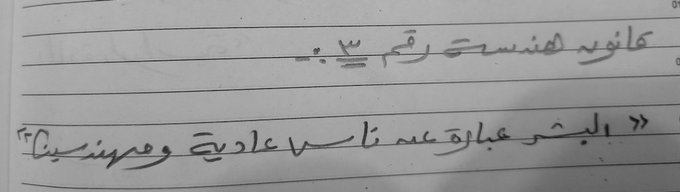 قانون هندسة رقم ٣ :-
« البشر عبارة عن ناس عادية ومهندسين "